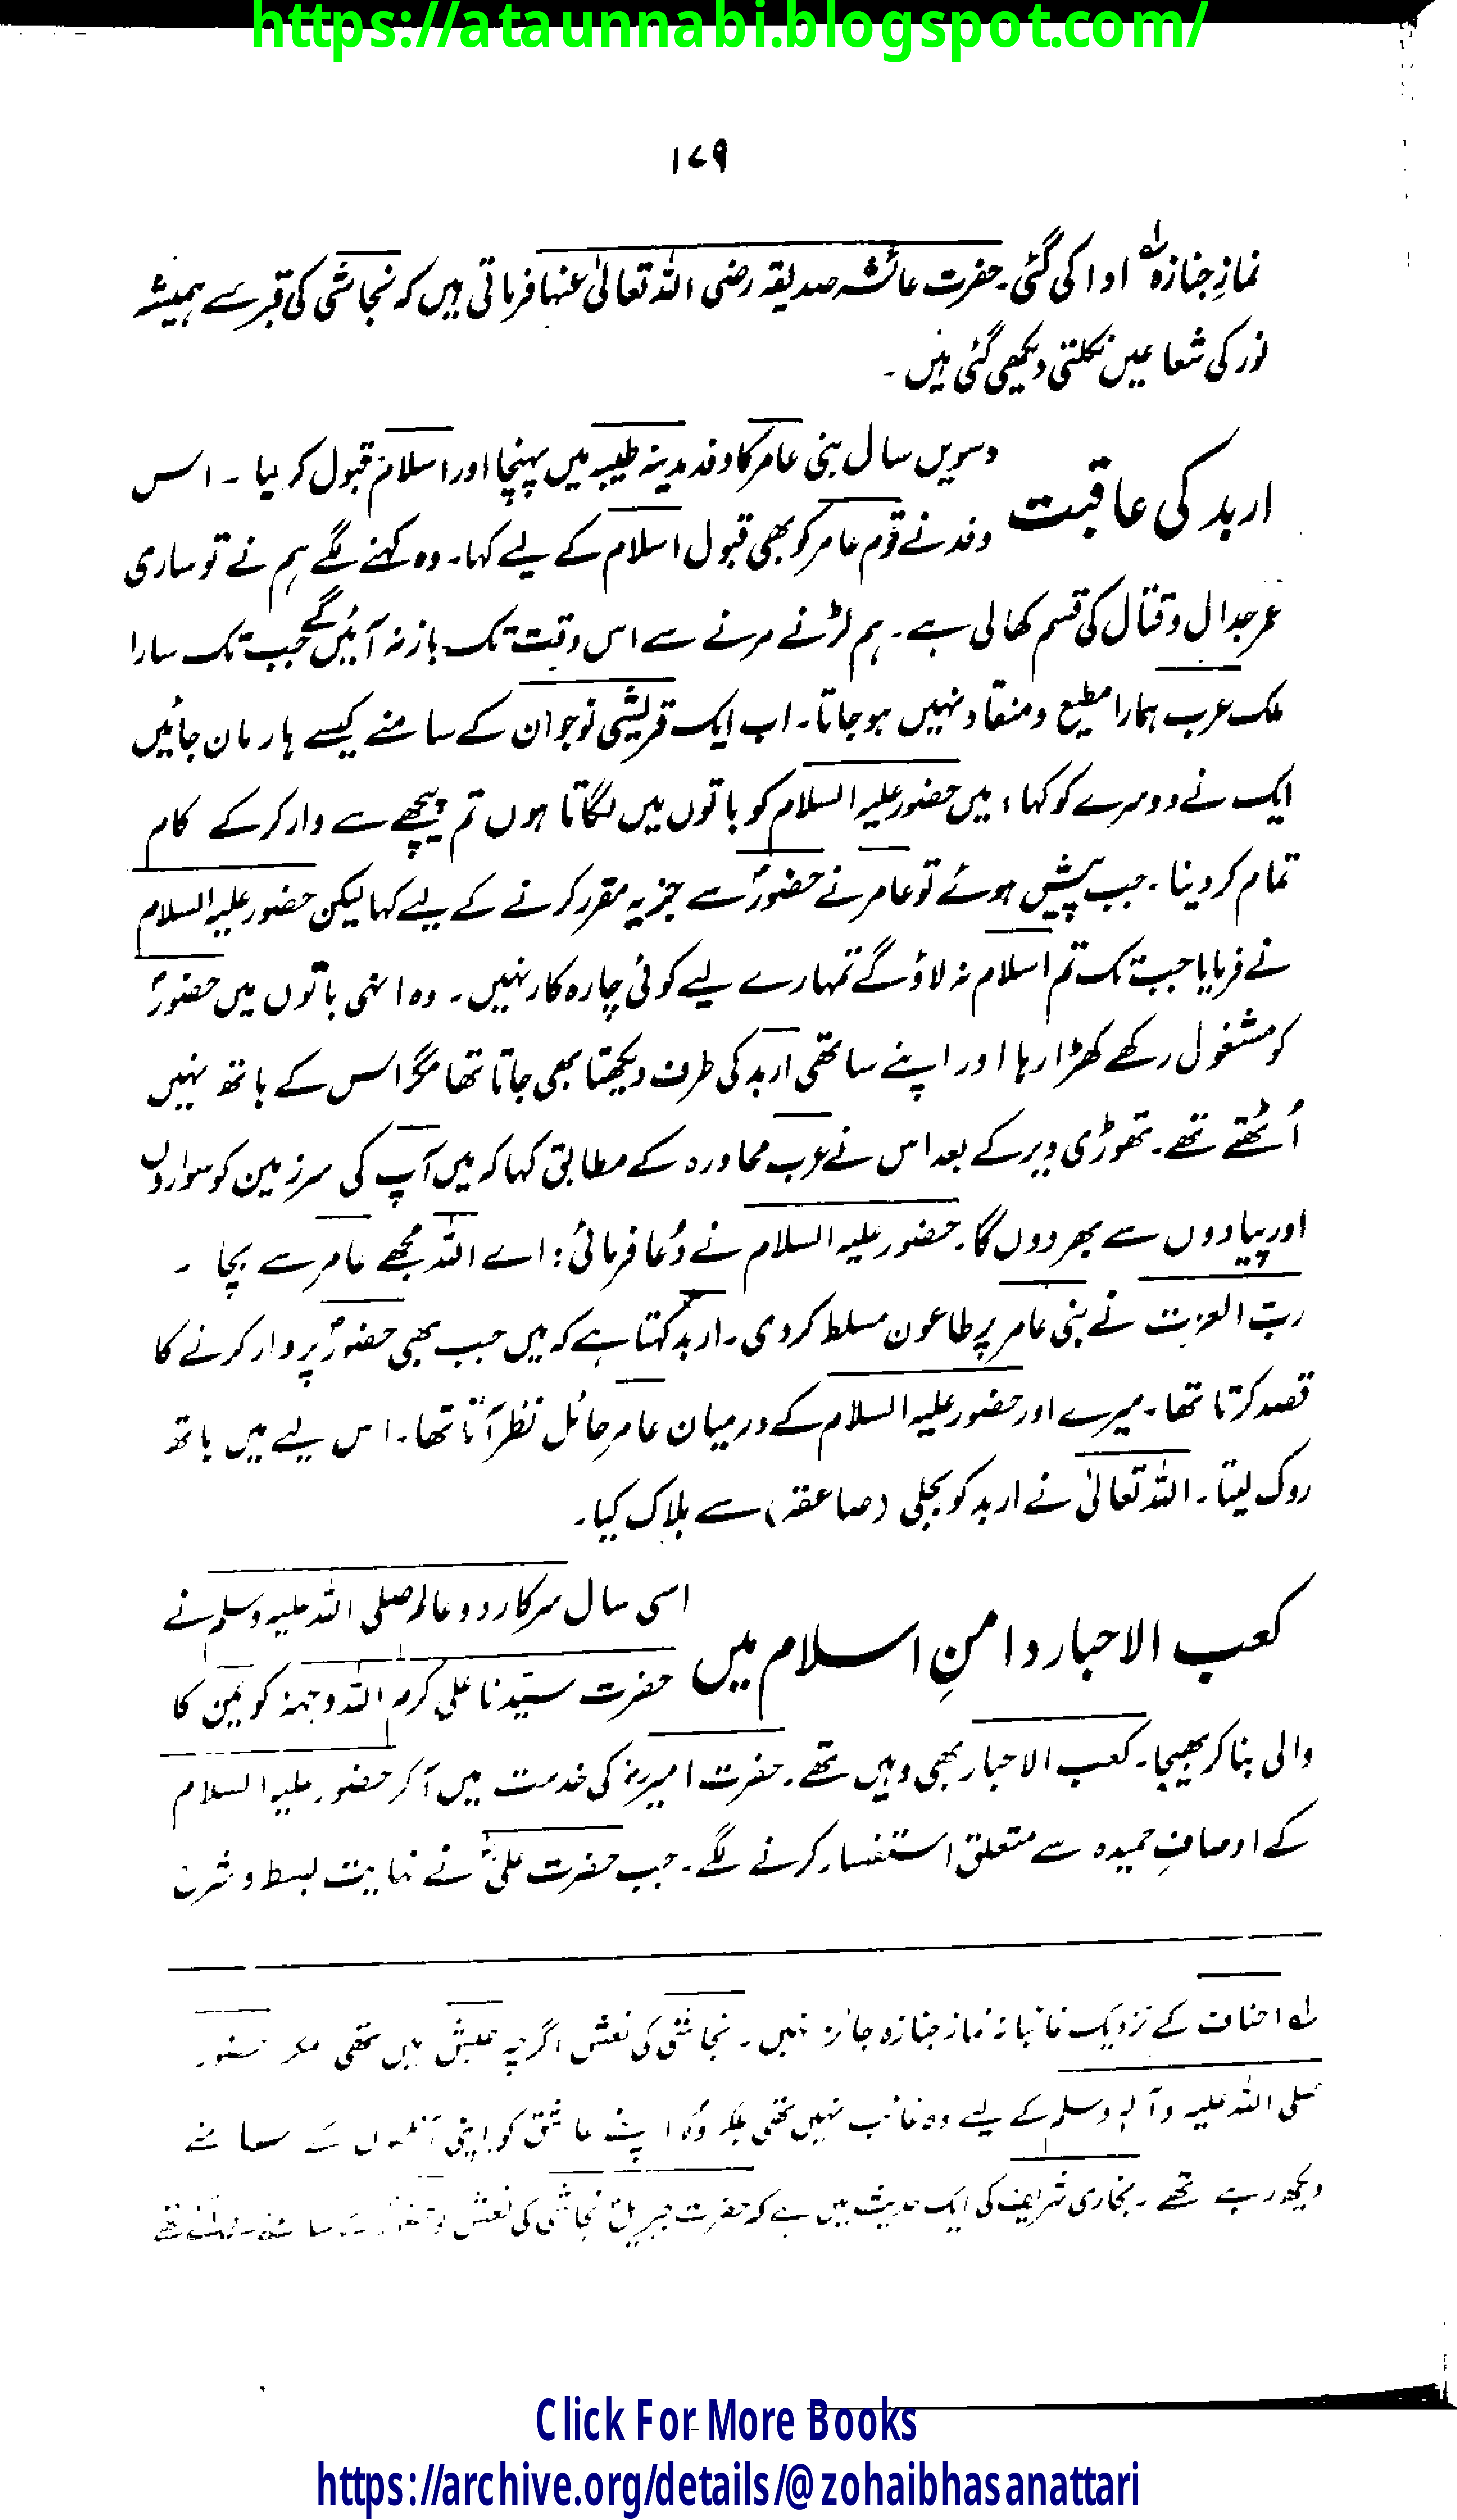 https://ataunnabi.blogspot.com/
۱۷۹
نمازِ جنازہ ادا کی گئی۔ حضرت عائشہ صدیقہ رضی اللہ تعالیٰ عنہا فرماتی ہیں کہ نجاشی کی قبر سے ہمیشہ
نور کی شعاعیں نکلتی دیکھی گئی ہیں۔
اربد کی عاقبت
دسویں سال بنی عامر کا وفد مدینہ طیبہ میں پہنچا اور اسلام قبول کر لیا۔ اس
وفد نے قوم عامر کو بھی قبول اسلام کے لیے کہا۔ وہ کہنے لگے ہم نے تو ساری
عمر جدال و قتال کی قسم کھالی ہے۔ ہم لڑنے مرنے سے اس وقت تک باز نہ آئیں گے جب تک سارا
ملک عرب ہمارا مطیع و منقاد نہیں ہو جاتا۔ اب ایک قریشی نوجوان کے سامنے کیسے ہار مان جائیں
ایک نے دوسرے کو کہا، میں حضور علیہ السلام کو باتوں میں لگاتا ہوں تم پیچھے سے وار کر کے کام
تمام کر دینا۔ جب پیش ہوئے تو عامر نے حضورؐ سے جزیہ مقرر کرنے کے لیے کہا لیکن حضور علیہ السلام
نے فرمایا جب تک تم اسلام نہ لاؤ گے تمہارے لیے کوئی چارہ کار نہیں۔ وہ انہی باتوں میں حضورؐ
کو مشغول رکھے کھڑا رہا اور اپنے ساتھی اربد کی طرف دیکھتا بھی جاتا تھا مگر اس کے ہاتھ نہیں
اُٹھتے تھے۔ تھوڑی دیر کے بعد اس نے عرب محاورہ کے مطابق کہا کہ میں آپ کی سرزمین کو سواروں
اور پیادوں سے بھر دوں گا۔ حضور علیہ السلام نے دُعا فرمائی: اے اللہ مجھے عامر سے بچا۔
ربّ العزت نے بنی عامر پر طاعون مسلط کر دی۔ اربد کہتا ہے کہ میں جب بھی حضورؐ پر وار کرنے کا
قصد کرتا تھا۔ میرے اور حضور علیہ السلام کے درمیان عامر حائل نظر آتا تھا۔ اس لیے میں ہاتھ
روک لیتا۔ اللہ تعالیٰ نے اربد کو بجلی (صاعقہ) سے ہلاک کیا۔
کعب الاحبار دامنِ اسلام میں
اسی سال سرکار دو عالم صلی اللہ علیہ وسلم نے
حضرت سیّدنا علی کرم اللہ وجہہٗ کو یمن کا
والی بنا کر بھیجا۔ کعب الاحبار بھی وہیں تھے۔ حضرت امیرؓ کی خدمت میں آ کر حضور علیہ السلام
کے اوصافِ حمیدہ سے متعلق استفسار کرنے لگے۔ جب حضرت علیؓ نے نہایت بسط و شرح
لہ احناف کے نزدیک غائبانہ نماز جنازہ جائز نہیں۔ نجاشی کی نعش اگرچہ حبش میں تھی مگر حضور
صلی اللہ علیہ وآلہٖ وسلم کے لیے وہ غائب نہیں تھی بلکہ وُہ اپنے عاشق کو اپنی آنکھوں کے سامنے
دیکھ رہے تھے۔ بخاری شریف کی ایک حدیث میں ہے کہ حضرت جبریلؑ نجاشی کی نعش
Click For More Books
https://archive.org/details/@zohaibhasanattari